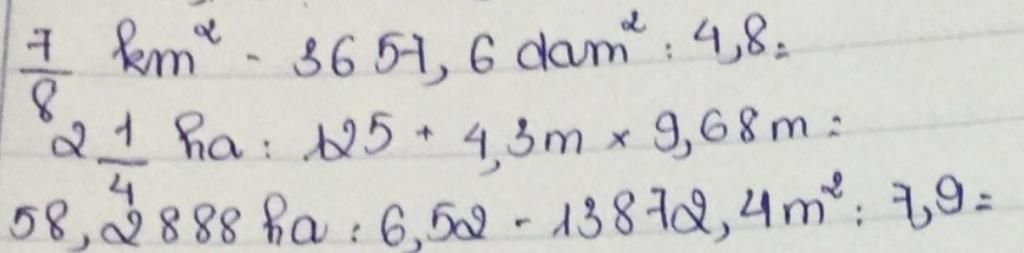 7/8 km² - 3657,6 dam² : 4,8 =
2 1/4 ha : 125 + 4,3m × 9,68m =
58,2888 ha : 6,52 - 13872,4 m² : 7,9 =